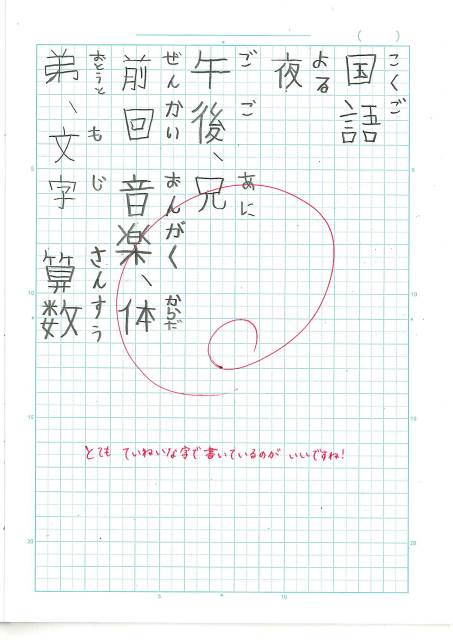 こくご
国語
よる
夜
ごご あに
午後、兄
ぜんかい おんがく からだ
前回 音楽、体
おとうと もじ さんすう
弟、文字 算数
とても ていねいな字で書いているのが いいですね!
5
10
15
20
5
10
15
20
5
10